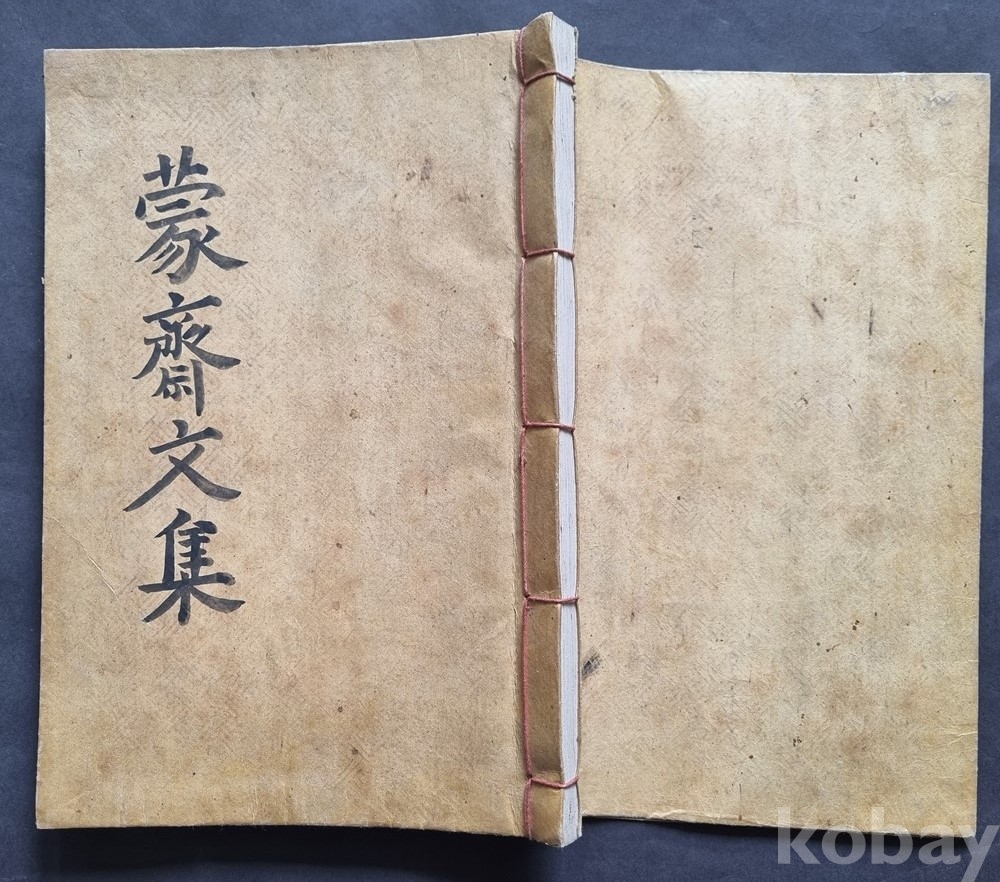 蒙齋文集
kobay